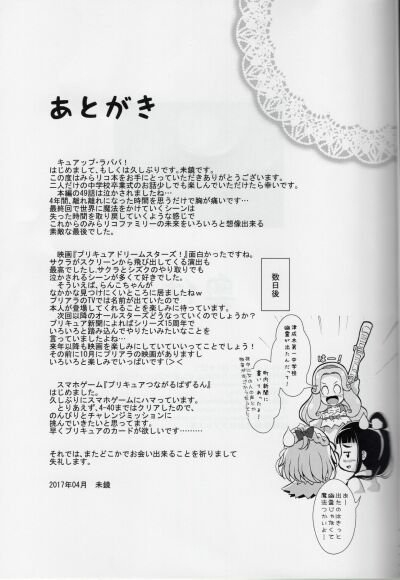 あとがき
キュアップ・ラパパ！
はじめまして、もしくは久しぶりです。未鏡です。
この度はみらリコ本をお手にとっていただきありがとうございます。
二人だけの中学校卒業式のお話少しでも楽しんでいただけたら幸いです。
本編の49話は泣かされましたね…
4年間、離れ離れになった時間を思うだけで胸が痛いです…
最終回で世界に魔法をかけていくシーンは
失った時間を取り戻していくような感じで
これからのみらリコファミリーの未来をいろいろと想像出来る
素敵な最後でした。
映画『プリキュアドリームスターズ！』面白かったですね。
サクラがスクリーンから飛び出してくる演出も
最高でしたし、サクラとシズクのやり取りでも
泣かされるシーンが多くて好きでした。
そういえば、らんこちゃんが
なかなか見つけにくいところに居ましたねｗ
プリアラのTVでは名前が出ていたので
本人が登場してくれることを楽しみに待っています。
次回以降のオールスターズどうなっていくのでしょう？
プリキュア新聞によればシリーズ15周年で
いろいろと踏み込んでやりたいみたいなことを
言っていましたよね…
来年以降も映画を楽しみにしていていいってことでしょう！
その前に10月にプリアラの映画がありますし
いろいろ楽しみでいっぱいです（＞＜
スマホゲーム『プリキュアつながるぱずるん』
はじめました。
久しぶりにスマホゲームにハマっています。
とりあえず、4-40まではクリアしたので、
のんびりとチャレンジミッションに
挑んでいきたいと思ってます。
早くプリキュアのカードが欲しいです………
それでは、またどこかでお会い出来ることを祈りまして
失礼します。
2017年04月　未鏡
数日後
津成木第一中学校
幽霊が出たんだって！
町内新聞に
書いてあったよ！
おー
出たのはきっと
幽霊じゃなくて
魔法つかいよー